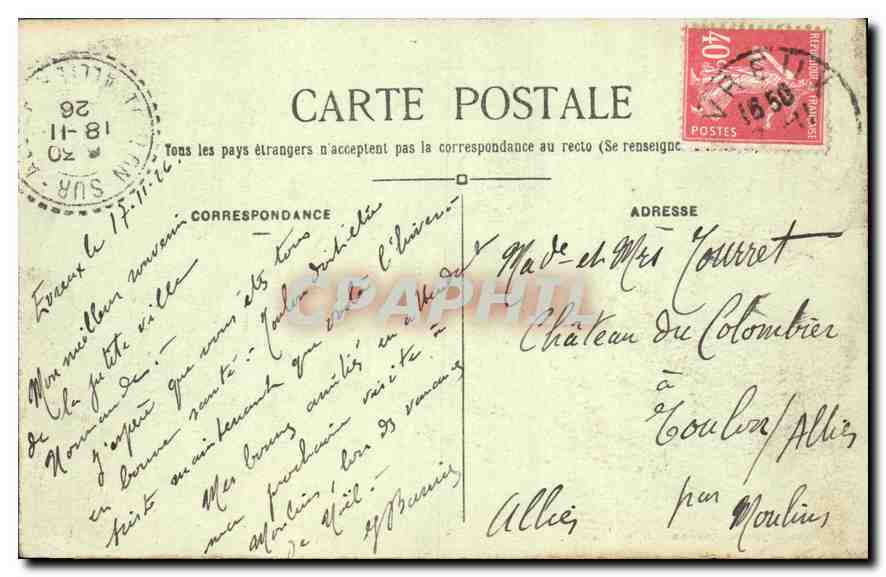 CARTE POSTALE
Tous les pays étrangers n'acceptent pas la correspondance au recto (Se renseigne
CORRESPONDANCE
ADRESSE
RÉPUBLIQUE FRANÇAISE
40c
POSTES
VREU
16 50
TOULON SUR ALLIER
6 30
18-11
26
Evreux le 17-11-26.
Mon meilleur souvenir
de la petite ville
Normande. -
J'espère que vous êtes tous
en bonne santé - Toulon doit être
triste maintenant que voilà l'hiver -
Mes bonnes amitiés en attendant
ma prochaine visite à
Moulins, lors des vacances
de Noël. -
Made et Mrs Tourret
Château du Colombier
à
Toulon/Allier
par
Moulins
Allier
CPAPHIL